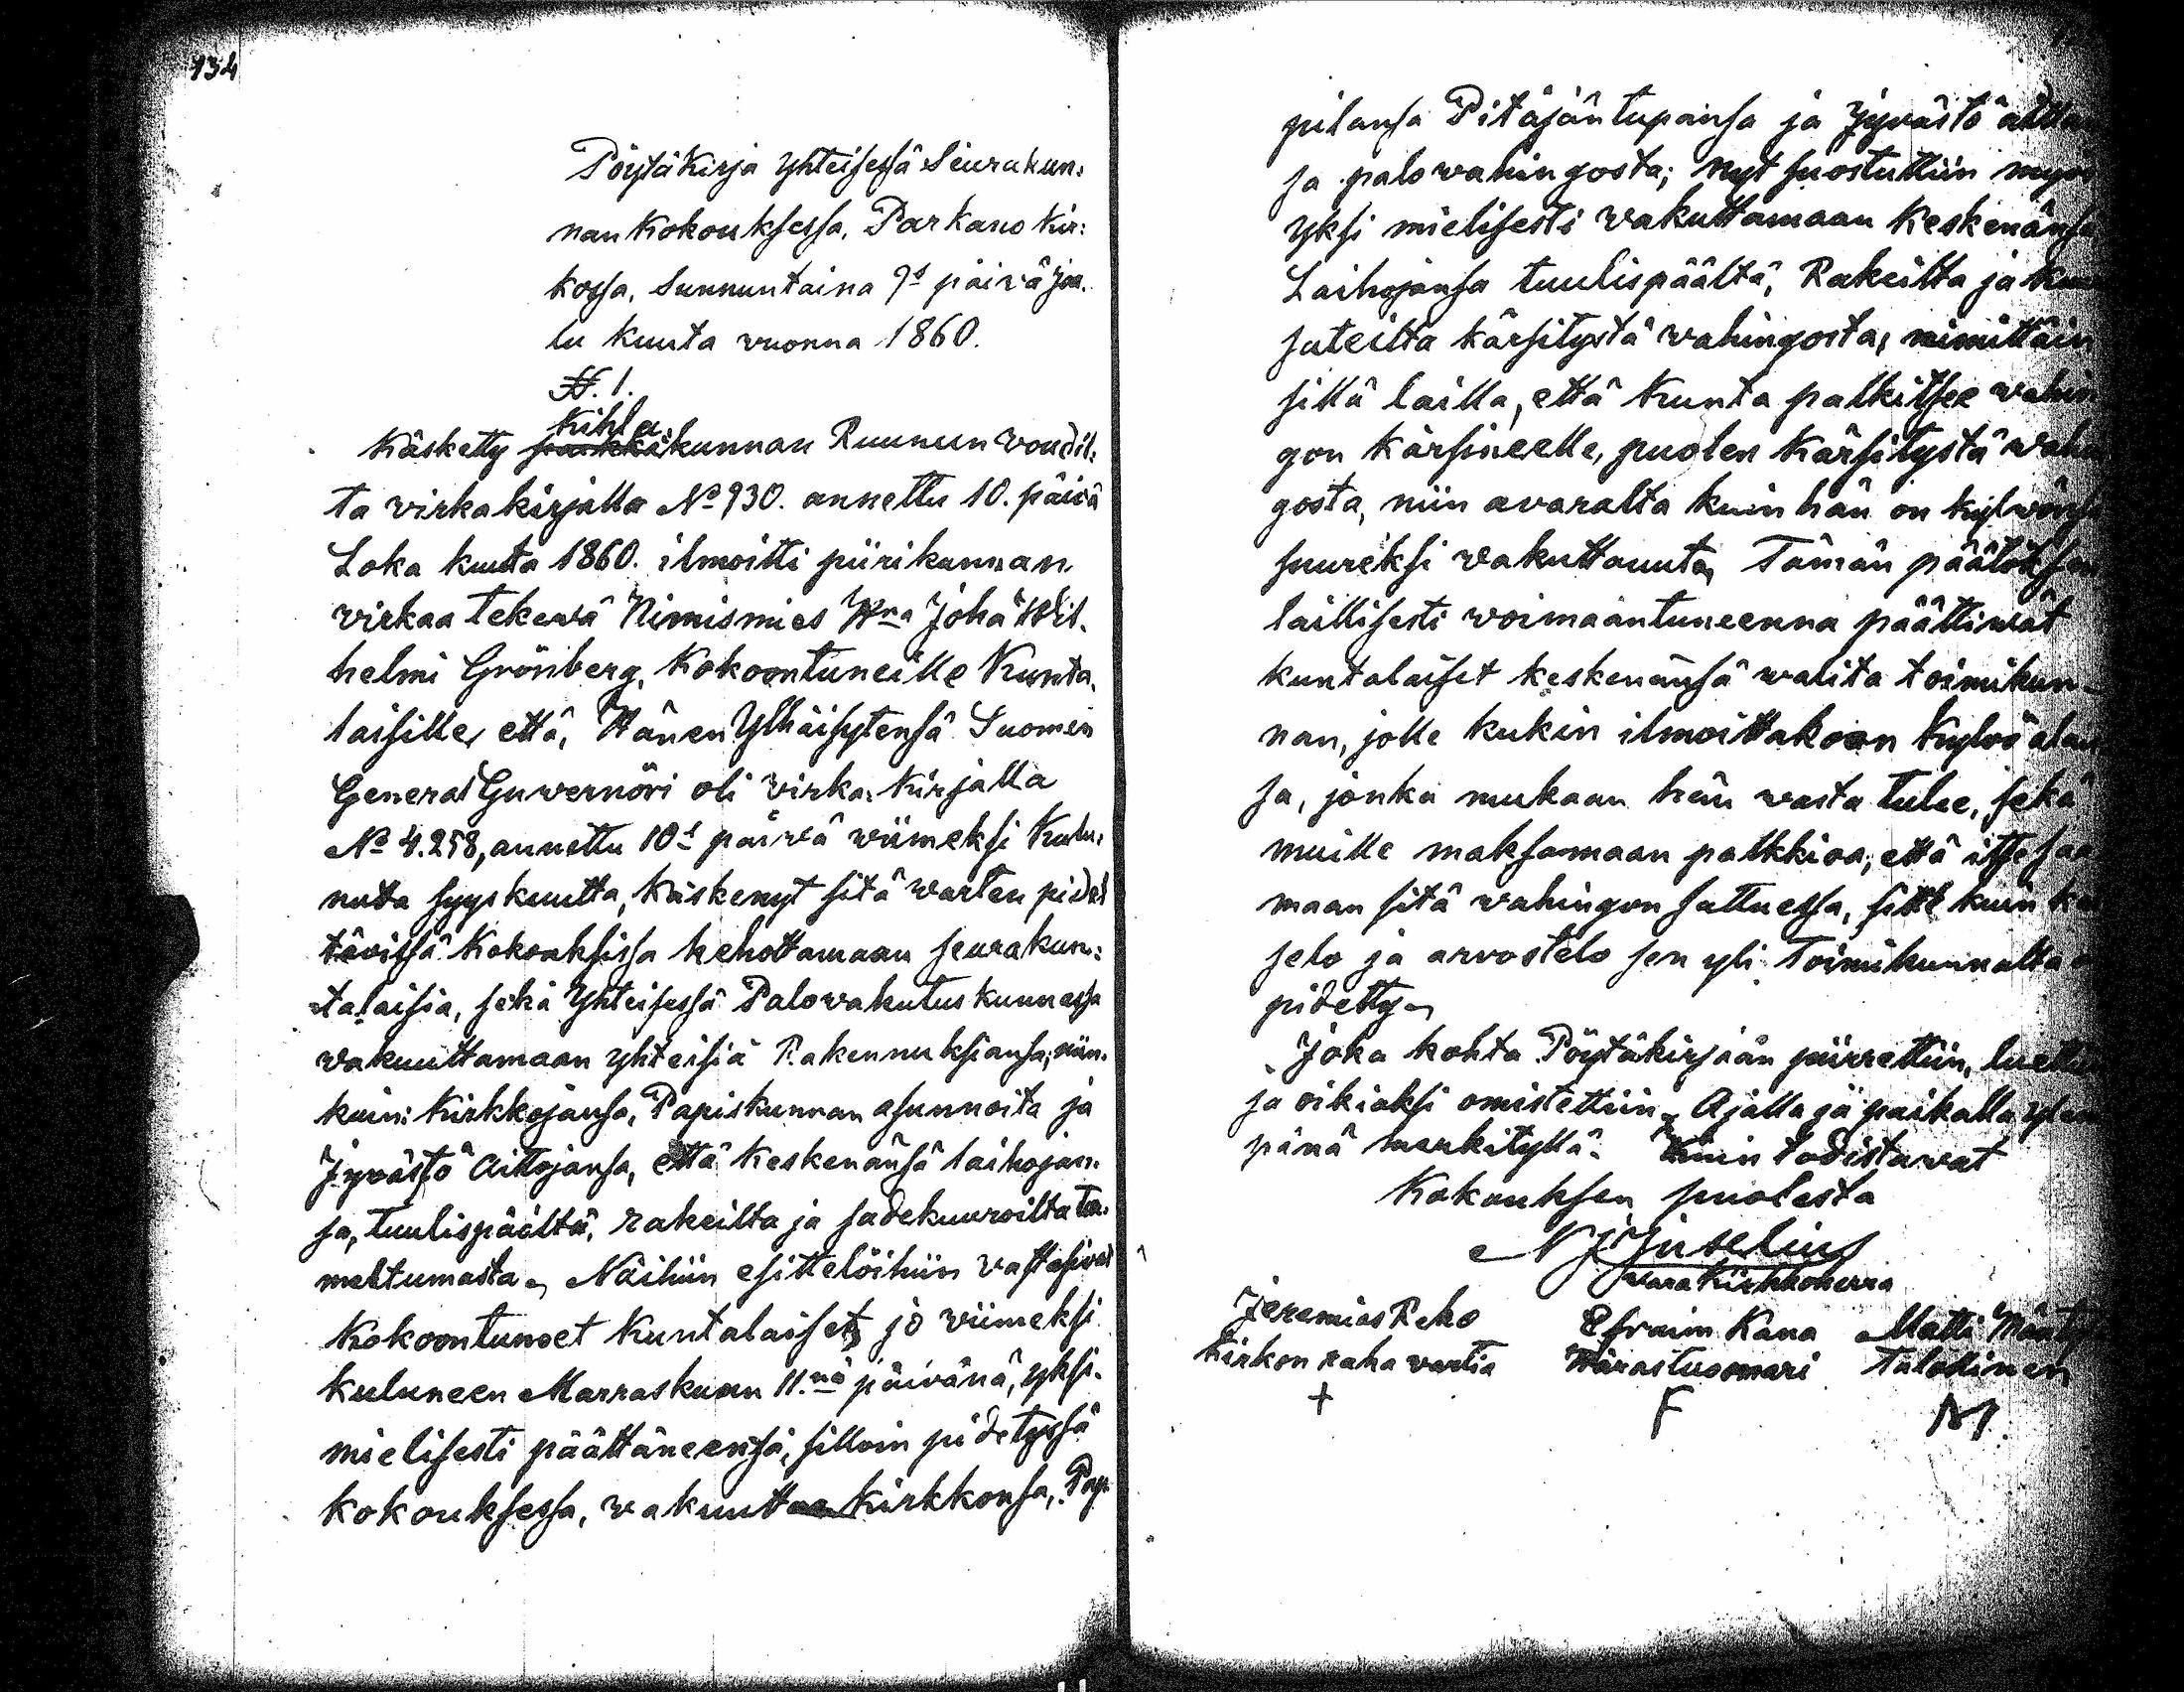 134
Pöytäkirja Yhteisessä Seurakun:
nan kokouksessa, Parkano kir:
kossa, Sunnuntaina 9s päivä Jou.
lu kuuta vuonna 1860.
§. 1.
Kihla
Käsketty kunnan Ruunun voudil:
ta virkakirjalla No 930. annettu 10. päivä
Loka kuuta 1860. ilmoitti piirikunnan
virkaa tekevä Nimismies Hra Joha Wil.
helmi Grönberg, Kokoontuneille Kunta.
laisille, että, Hänen Ylhäisytensä Suomen
General Guvernöri oli virka kirjalla
No 4.258, annettu 10s päivä viimeksi kulu.
nuta syyskuutta, käskenyt sitä varten pidet
tävissä Kokouksissa kehottamaan seurakun:
talaisia, sekä Yhteisessä Palovakutus kunnassa
vakuuttamaan yhteisiä Rakennuksiansa, niin.
kuin: Kirkkojansa, Papiskunnan asunnoita ja
Jyvästö Aittojansa, että keskenänsä laihojan.
sa, tuulispäältä, rakeilta ja sadekuuroilta ta.
mehtumasta. Näihiin esittelöihiin vastasivat
Kokoontunet Kuntalaiset, jo viimeksi
kuluneen Marraskuun 11.nä päivänä, yksi.
mielisesti päättäneensä, silloin pidetyssä
kokouksessa, vakuuttaa Kirkkonsa, Pap.
pilansa Pitäjäntupansa ja Jyvästö
sa palovahingosta; nyt suostuttiin
yksi mielisesti vakuttamaan keskenänsä
Laihojansa tuulispäältä, Rakeilta ja
suteilta kärsitystä vahingosta, nimittäin
sillä lailla, että kunta palkitsee vahin
gon kärsineelle, puolen kärsitystä vahin
gosta, niin avaralta kuin hän on
suureksi vakuttanuta. Tämän päätöksen
laillisesti voimaantuneenna päättivät
kuntalaiset keskenänsä valita toimikun-
nan, jolle kukin ilmoittakoon kylvö alan
sa, jonka mukaan hän vasta tulee, sekä
muille maksamaan palkkioa, että itse saa
maan sitä vahingon sattuessa, sitte kuin
selo ja arvostelo sen yli Toimikunnalta
pidetty.
Joka kohta Pöytäkirjaan piirrettiin, luettiin
ja oikiaksi omistettiin. Ajalla ja paikalla ylem
pänä merkityllä. Kuin todistavat
Kokouksen puolesta
N J Juselius
vara Kirkkoherra
Jeremias Reko Efraim Kana Matti
Kirkon raha vartia Wärastuomari Talollinen
+ F M